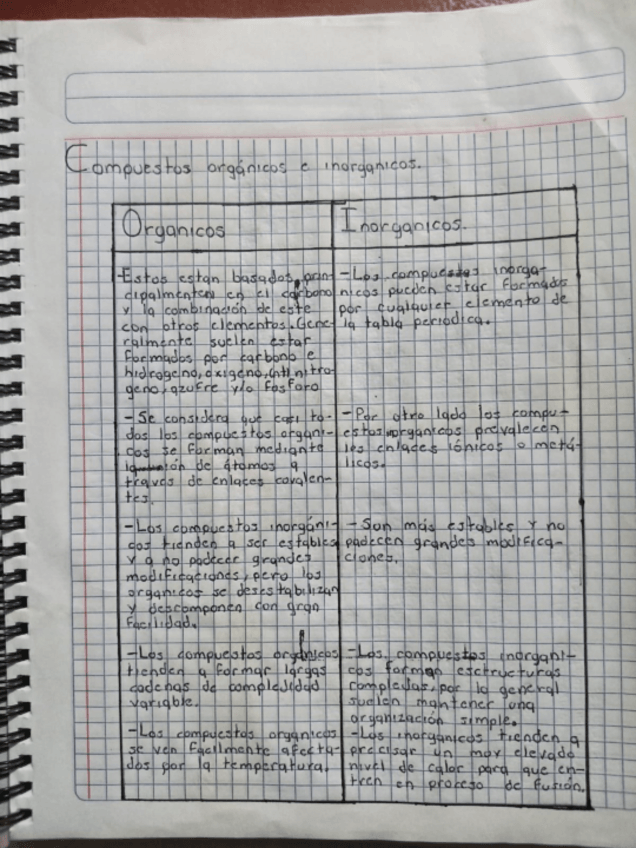 Compuestos orgánicos e inorganicos.
Organicos
-Estos estan basados prin-
cipalmente en el carbono
y la combinación de este
con otros elementos. Gene-
ralmente suelen estar
formados por carbono e
hidrogeno, oxigeno, nitro-
geno, azufre y/o fosforo
-Se considera que casi to-
dos los compuestos organi-
cos se forman mediante
unión de átomos a
través de enlaces covalen-
tes.
-Los compuestos inorgáni-
cos tienden a ser estables
y a no padecer grandes
modificaciones, pero los
organicos se desestabilizan
y descomponen con gran
facilidad.
-Los compuestos orgánicos
tienden a formar largas
cadenas de complejidad
variable.
-Los compuestos orgánicos
se ven facilmente afecta-
dos por la temperatura.
Inorganicos.
-Los compuestos inorga-
nicos pueden estar formados
por cualquier elemento de
la tabla periodica.
-Por otro lado los compu-
estos inorganicos prevalecen
los enlaces iónicos o metá-
licos.
-Son más estables y no
padecen grandes modifica-
ciones.
-Los compuestos inorgani-
cos forman esctructuras
complejas, por lo general
suelen mantener una
organización simple.
-Los inorganicos tienden a
precisar un muy elevado
nivel de calor para que en-
tren en proceso de fusión.